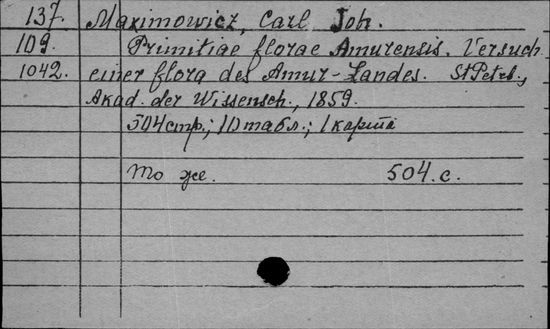 137. Maximowicz, Carl Joh.
109. Primitiae florae Amurensis. Versuch
1042. einer flora des Amur-Landes. St Petrb.,
Akad. der Wissensch., 1859.
504 стр.; 10 табл.; 1 карта
То же. 504. с.